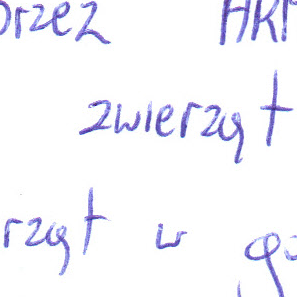 przez
zwierząt
rząt w